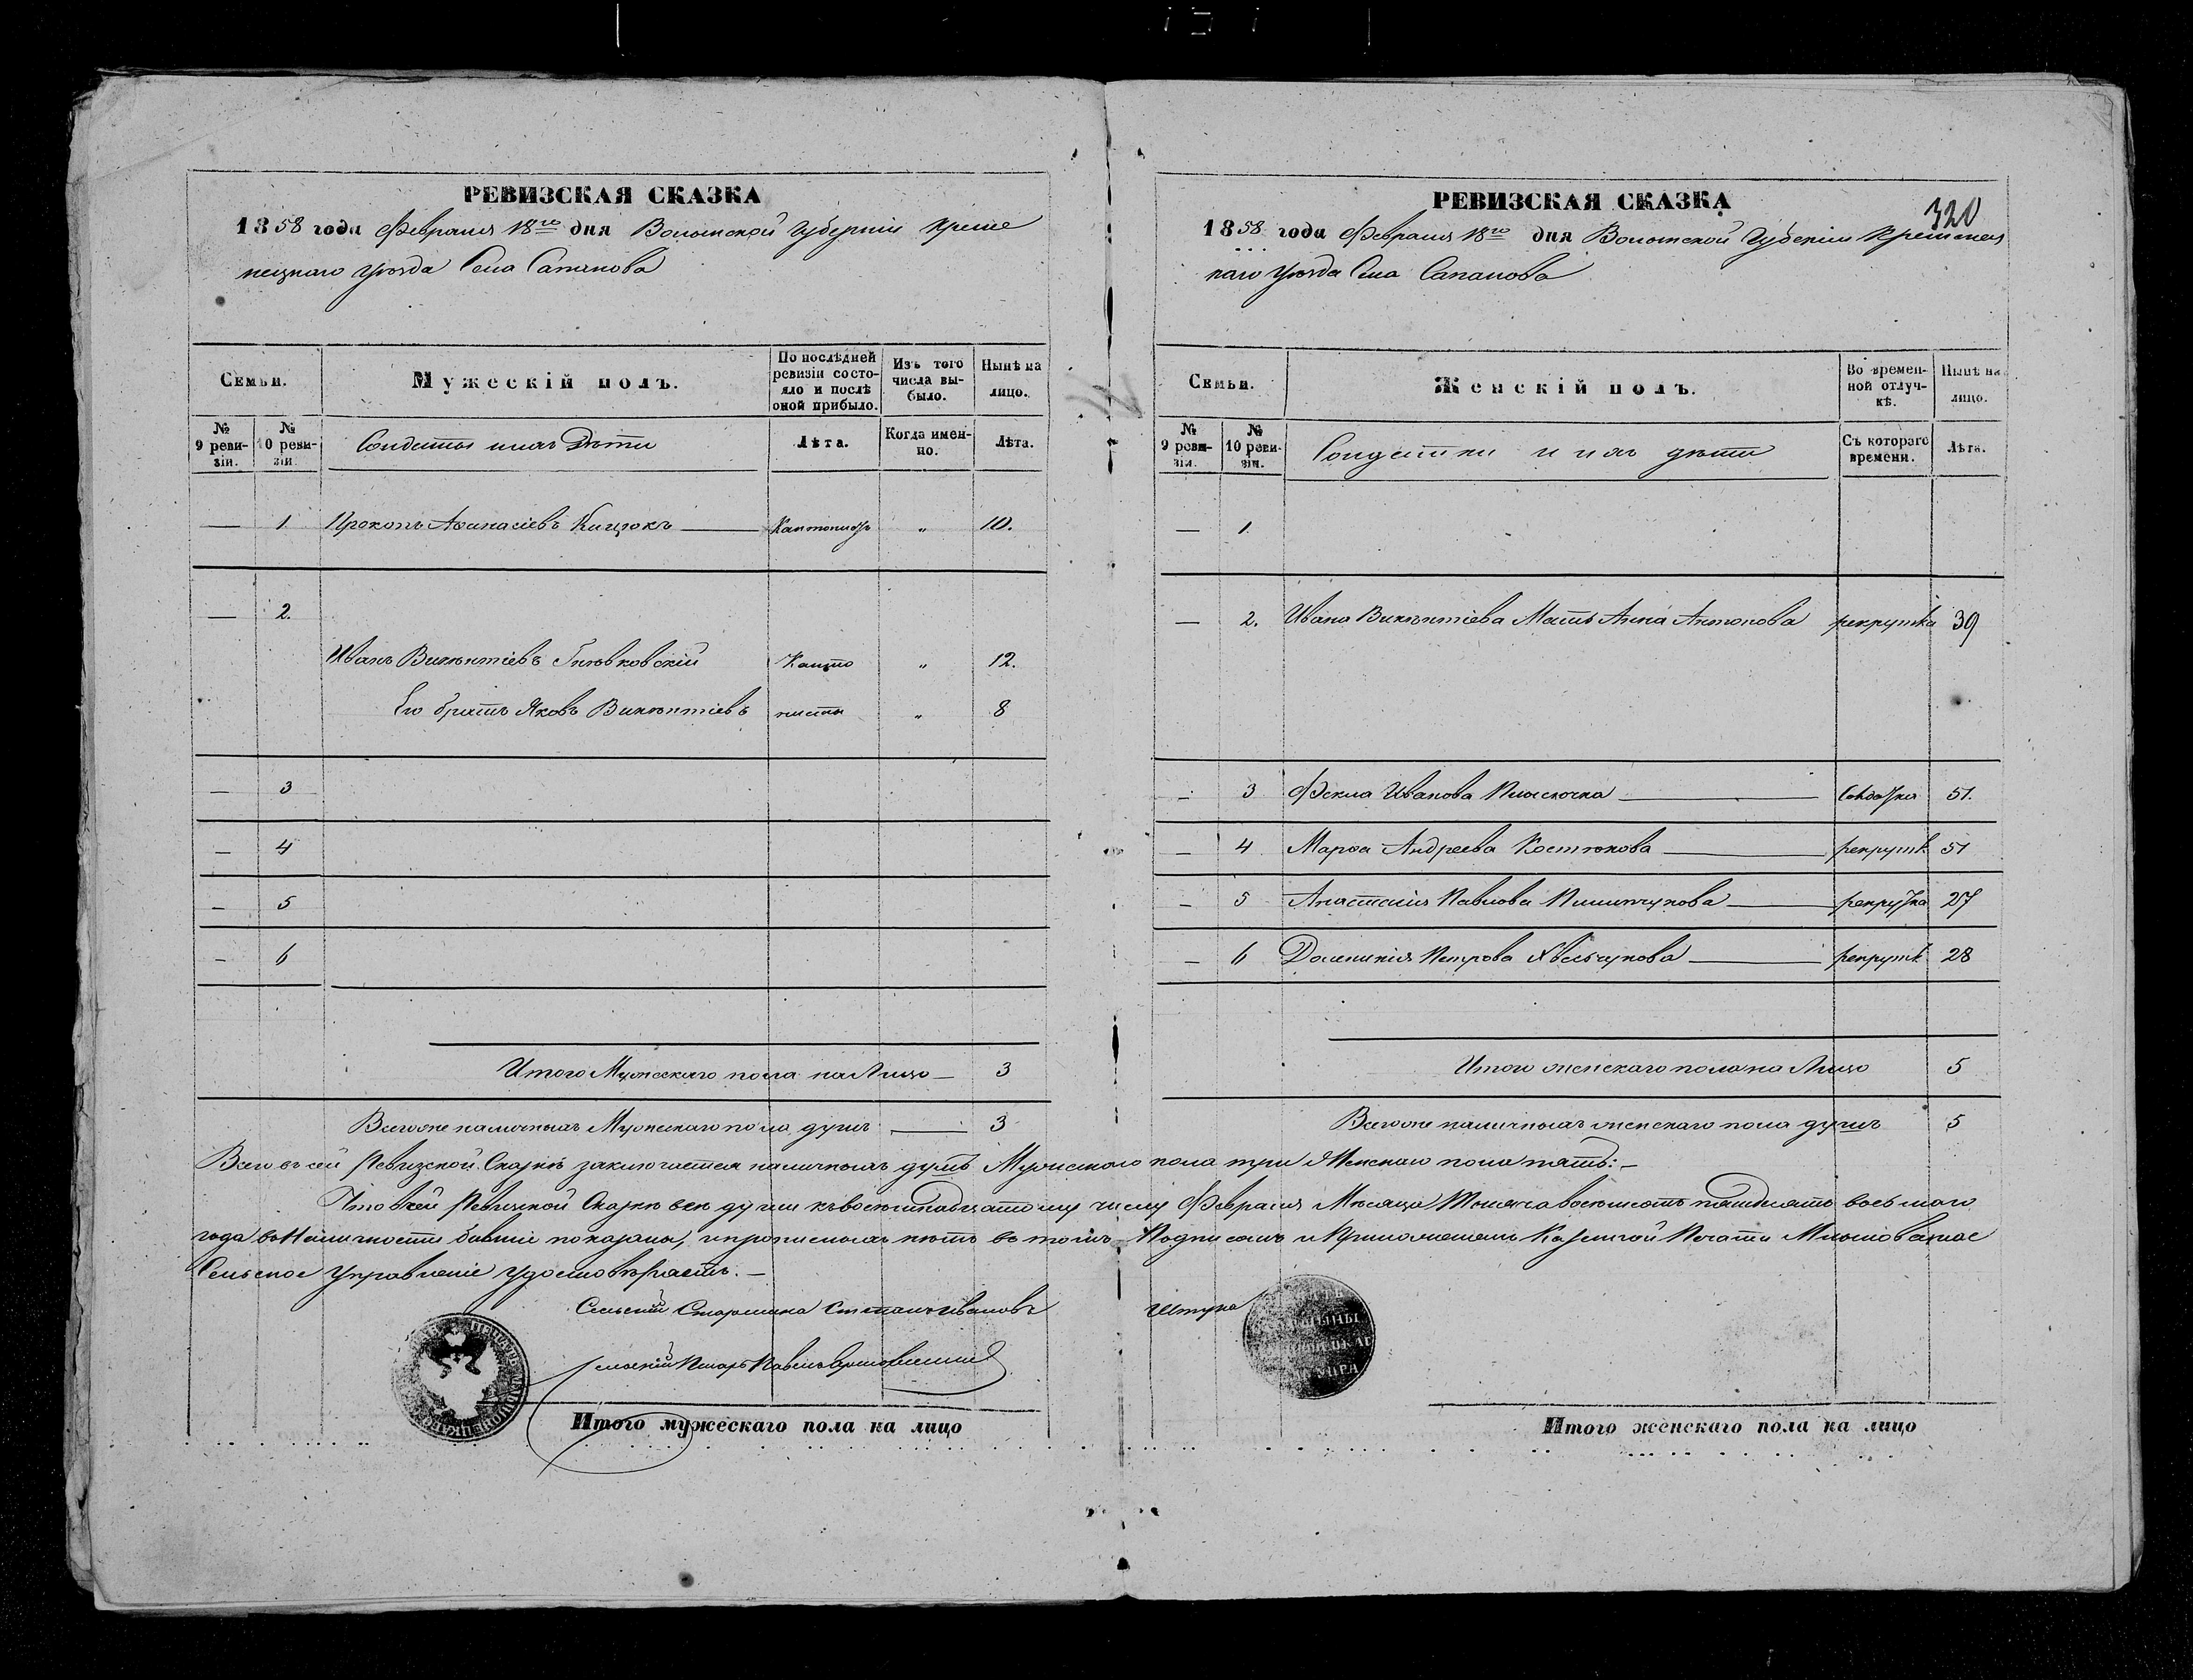 РЕВИЗСКАЯ СКАЗКА
1858 года Февраля 18го дня Волынской Губерніи Креме
нецкаго уѣзда Села Сапанова
Семьи.
Мужескій полъ.
По послѣдней ревизіи состояло и послѣ оной прибыло.
Изъ того числа выбыло.
Нынѣ на лицо.
№ 9 ревизіи.
№ 10 ревизіи.
Солдаты ихъ Дѣти
Лѣта.
Когда именно.
Лѣта.
— 1 Прокопъ Афанасіевъ Кицюкъ Кантонистъ „ 10.
— 2.
Иванъ Викентіевъ Канто „ 12.
Его братъ Яковъ Викентіевъ нисты „ 8
— 3
— 4
— 5
— 6
Итого Мужескаго пола на Лицо — 3
Всего же наличныхъ Мужескаго пола душъ — 3
320
РЕВИЗСКАЯ СКАЗКА
1858 года Февраля 18го дня Волынской Губерніи Кременец
каго уѣзда Села Сапанова
Семьи.
Женскій полъ.
Во временной отлучкѣ.
Нынѣ на лицо.
№ 9 ревизіи.
№ 10 ревизіи.
Солдатки и ихъ дѣти
Съ котораго времени.
Лѣта.
— 1.
— 2. Ивана Викентіева Мать Анна Антонова рекрутка 39
— 3 Фекла Иванова Солдатка 51.
— 4 Марфа Андреева Костюкова рекрутк 51
— 5 Анастасія Павлова рекрутка 27
— 6 Доминикія Петрова рекрутк 28
Итого женскаго пола на Лицо 5
Всего же наличныхъ женскаго пола душъ 5
Всего въ сей Ревизской Сказкѣ заключается наличныхъ душъ Мужескаго пола три Женскаго пола пять: —
Что въ сей Ревизской Сказкѣ всѣ души къ восемнадцатому числу Февраля Мѣсяца Тысяча восемьсотъ пятьдесятъ восьмаго
года въ Наличности бывшіе показаны, и прописныхъ нѣтъ въ томъ Подписомъ и Приложеніемъ Казенной Печати
Сельское Управленіе удостовѣряетъ. —
Сельскій Старшина Степанъ Ивановъ Штука
Сельскій Писарь Павелъ
Итого мужескаго пола на лицо
Итого женскаго пола на лицо